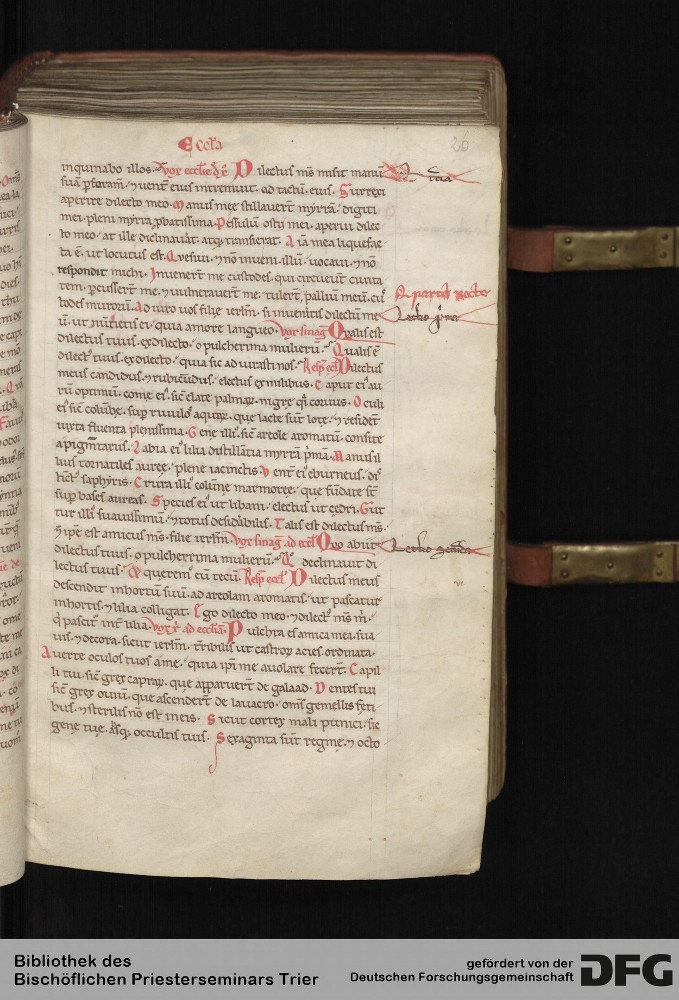 26
inquinabo illos. Vox ecclie d' x̄ Dilectus ms̄ misit manū
suā p foram. ⁊ uent̄ eius intremuit. ad tactū eius. Surrexi
aperire dilecto meo. Manus mee stillauert̄ myrrā. digiti
mei pleni myrra ꝓbatissima. Pessulū ostii mei. aperui dilec
to meo. at ille declinauāt. atq; transierat. Aīa mea liquefac
ta ē. ut locutus est. Quesiui. ⁊ nō inueni illū. uocaui. ⁊ nō
respondit michi. Inuenert̄ me custodes. qui circueūt ciuita
tem. pcussert̄ me. ⁊ uulnerauert̄ me. tulert̄ palliū meū. cus
todes murorū. Adiuro uos filie ierlm̄. si inueneritis dilectū me
ū. ut nūtietis ei. quia amore langueo. Vox sinag Qualis est
dilectus tuus. ex dilecto. o pulcherrima mulierū. Qualis ē
dilectꝰ tuus. ex dilecto. quia sic adiurasti nos. Resp eccl Dilectus
meus candidus. ⁊ rubicūdus. electus ex milibus. Caput eiꝰ au
rū optimū. come eiꝰ. sic̄ elate palmaꝝ. nigre q̄si coruus. Oculi
eiꝰ sic̄ colūbe. sup riuulos aquaꝝ. que lacte sūt lote. ⁊ resident
iuxta fluenta plenissima. Gene illiꝰ. sic̄ areole aromatū. consite
a pigmtariis. Labia eiꝰ lilia distillātia myrrā pmā. Manus il
lius tornatiles auree. plene iacinctis. Vent̄ eiꝰ eburneus. dis
tictꝰ saphyris. Crura illiꝰ colūne marmoree. que fūdate st̄
sup bases aureas. Species eiꝰ ut libani. electus ut cedri. Gut
tur illiꝰ suauissimū. ⁊ totus desidābilis. Talis est dilectus ms̄.
⁊ ipse est amicus ms̄. filie ierlm̄. Vox sinag ad eccl Quo abiit
dilectus tuus. o pulcherrima mulierū. Q° declinauit di
lectus tuus. ⁊ queremꝰ eū tecū. Resp eccl Dilectus meus
descendit in hortū suū. ad areolam aromatis. ut pascatur
in hortis. ⁊ lilia colligat. Ego dilecto meo. ⁊ dilectꝰ ms̄ m̄.
q̄ pascit̄ int̄ lilia. Vox x̄ ad eccliā. Pulchra es amica mea. sua
uis. ⁊ decora. sicut ierlm̄. tribilis ut castroꝝ acies. ordinata.
Auerte oculos tuos a me. quia ipi me auolare fecert̄. Capil
li tui. sic̄ grex capraꝝ. que apparuert̄ de galaad. Dentes tui
sic̄ grex ouiū. que ascendert̄ de lauacro. oms̄ gemellis feti
bus. ⁊ sterilis nō est in eis. Sicut cortex mali punici. sic
gene tue. absq; occultis tuis. Sexaginta sūt regine. ⁊ octo
Bibliothek des
Bischöflichen Priesterseminars Trier
gefördert von der
Deutschen Forschungsgemeinschaft
DFG